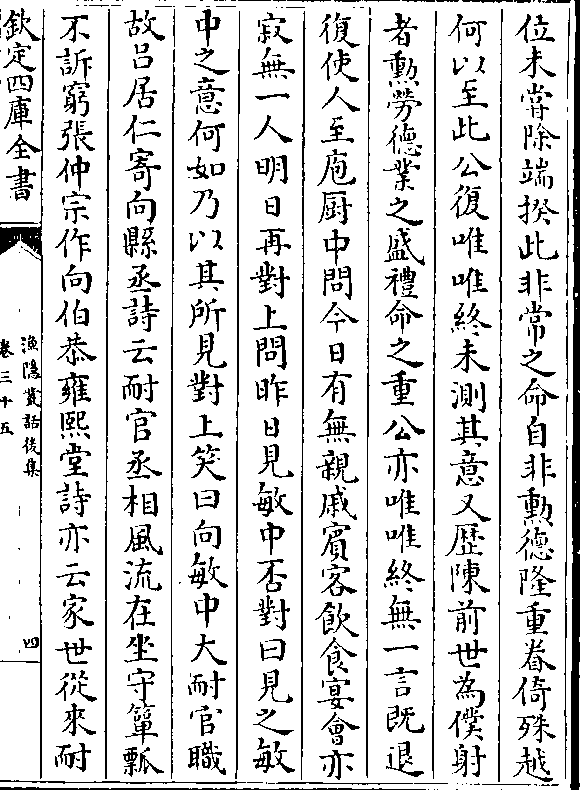 位未嘗除端揆此非常之命自非勲德隆重眷倚殊越
何以至此公復唯唯終未測其意又歴陳前世為僕射
者勲勞德業之盛禮命之重公亦唯唯終無一言既退
復使人至庖厨中問今日有無親戚賓客飲食宴會亦
寂無一人明日再對上問昨日見敏中否對曰見之敏
中之意何如乃以其所見對上笑曰向敏中大耐官職
故吕居仁寄向縣丞詩云耐官丞相風流在坐守簞瓢
不訴窮張仲宗作向伯恭雍熙堂詩亦云家世從來耐
欽定四庫全書
漁隠叢話後集
卷三十五
四